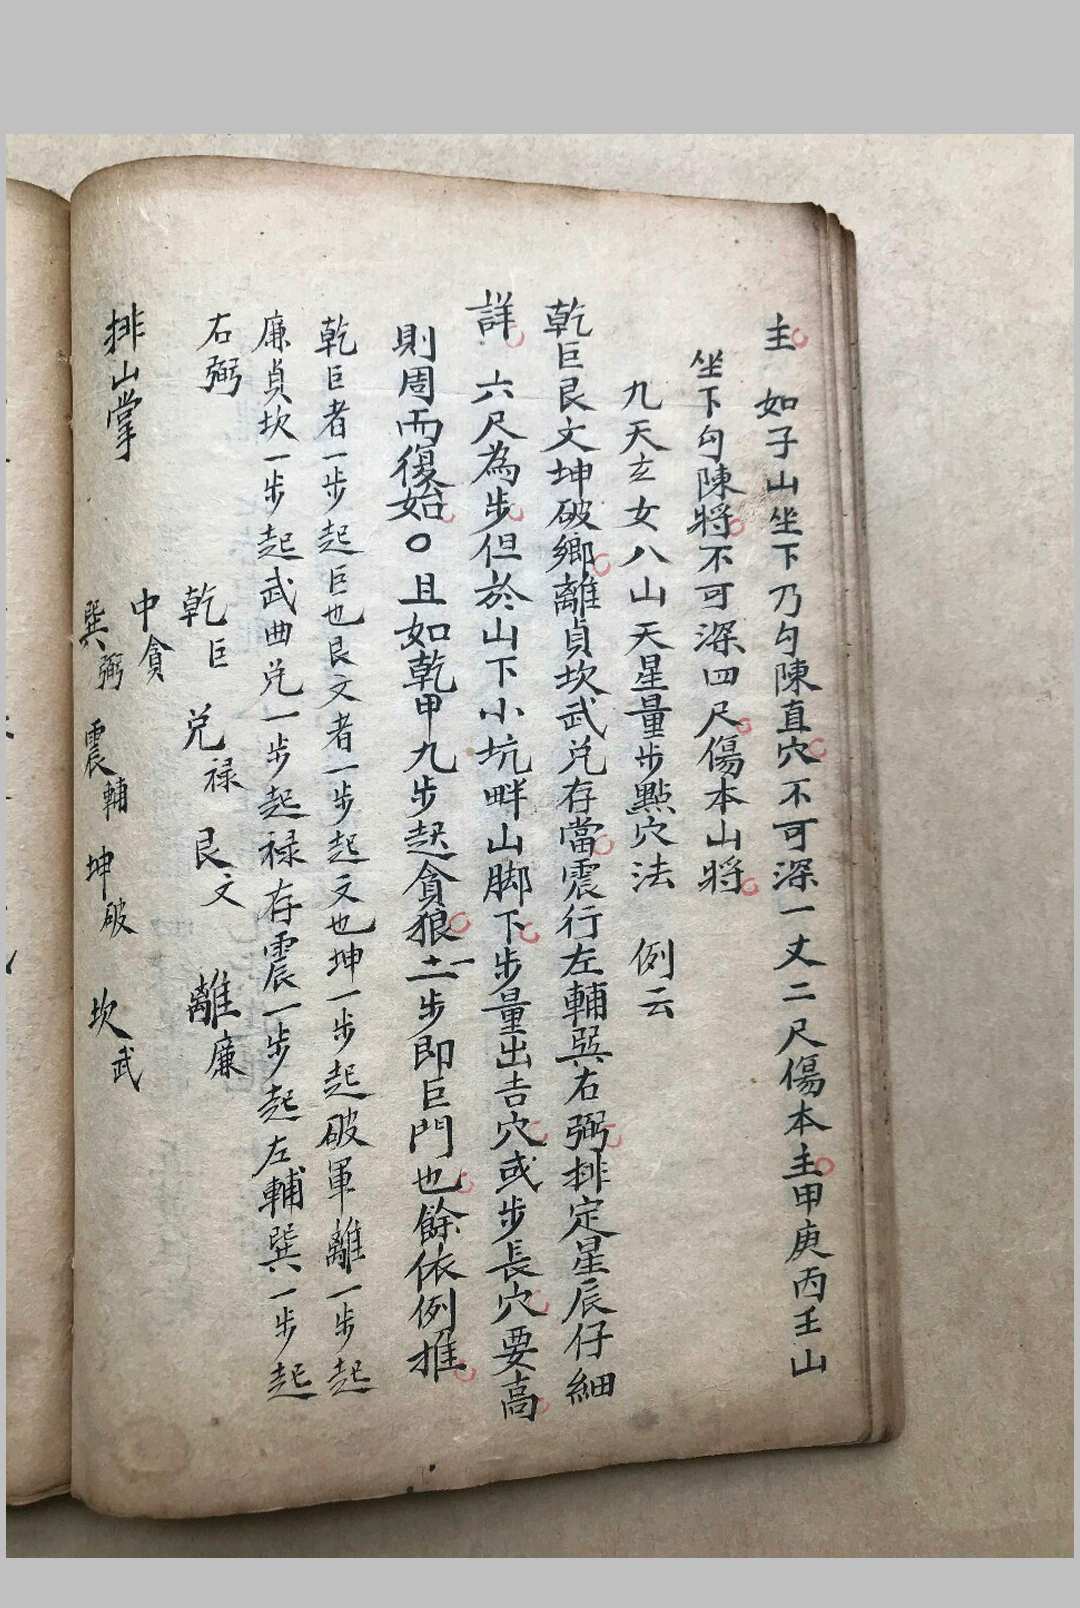 主 如子山坐下乃勾陳直穴不可深一丈二尺傷本主甲庚丙壬山
坐下勾陳將不可深四尺傷本山將
九天玄女八山天星量步點穴法 例云
乾巨艮文坤破鄉離貞坎武兑存當震行左輔巽右弼排定星辰仔細
詳 六尺為步但於山下小坑畔山脚下步量出吉穴或步長穴要高
則周而復始〇且如乾甲九步起貪狼十一步即巨門也餘依例推
乾巨者一步起巨也艮文者一步起文也坤一步起破軍離一步起
廉貞坎一步起武曲兑一步起禄存震一步起左輔巽一步起
右弼
乾巨 兑禄 艮文 離廉
中貪
排山掌
巽弼 震輔 坤破 坎武